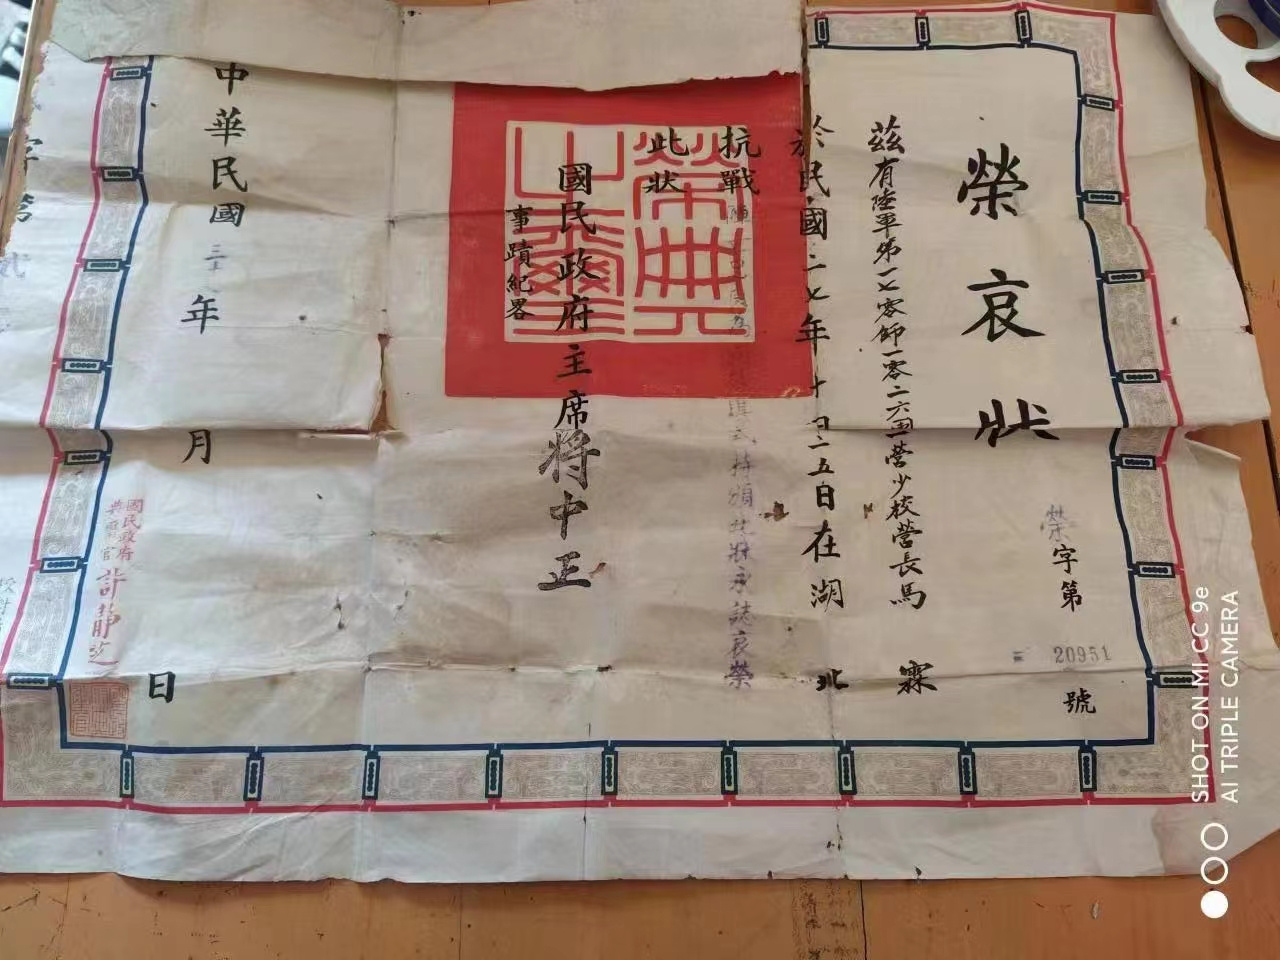 榮哀狀
榮字第
20951
號
茲有陸軍第一七零師一零二六團營少校營長馬霖
於民國二七年十月二五日在湖北
抗戰陣亡
特頒此狀永誌哀榮
此狀
國民政府主席蔣中正
事蹟紀畧
榮典之璽
中華民國三年月日
國民政府
典璽官
許靜芝
SHOT ON MI CC 9e
AI TRIPLE CAMERA